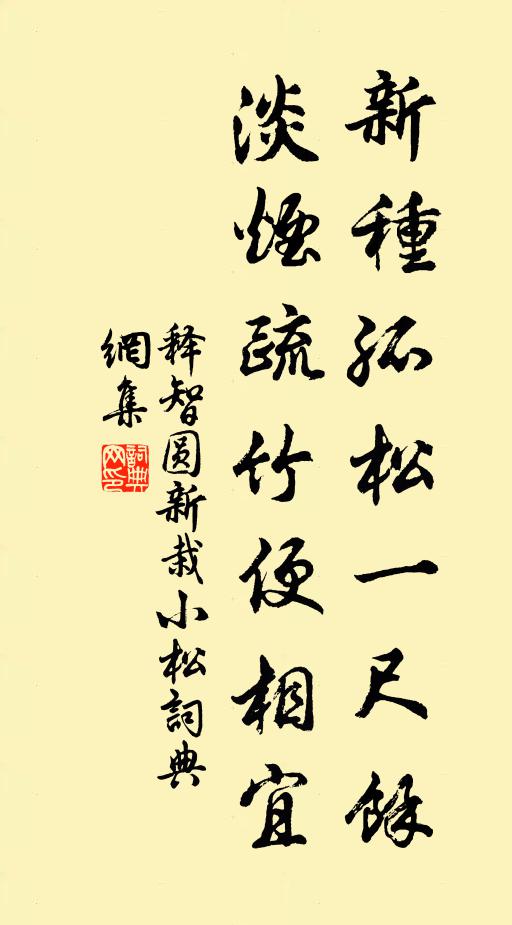 新種孤松一尺餘
淡煙疏竹便相宜
释智圆新栽小松詞典
網集
詞典
网印